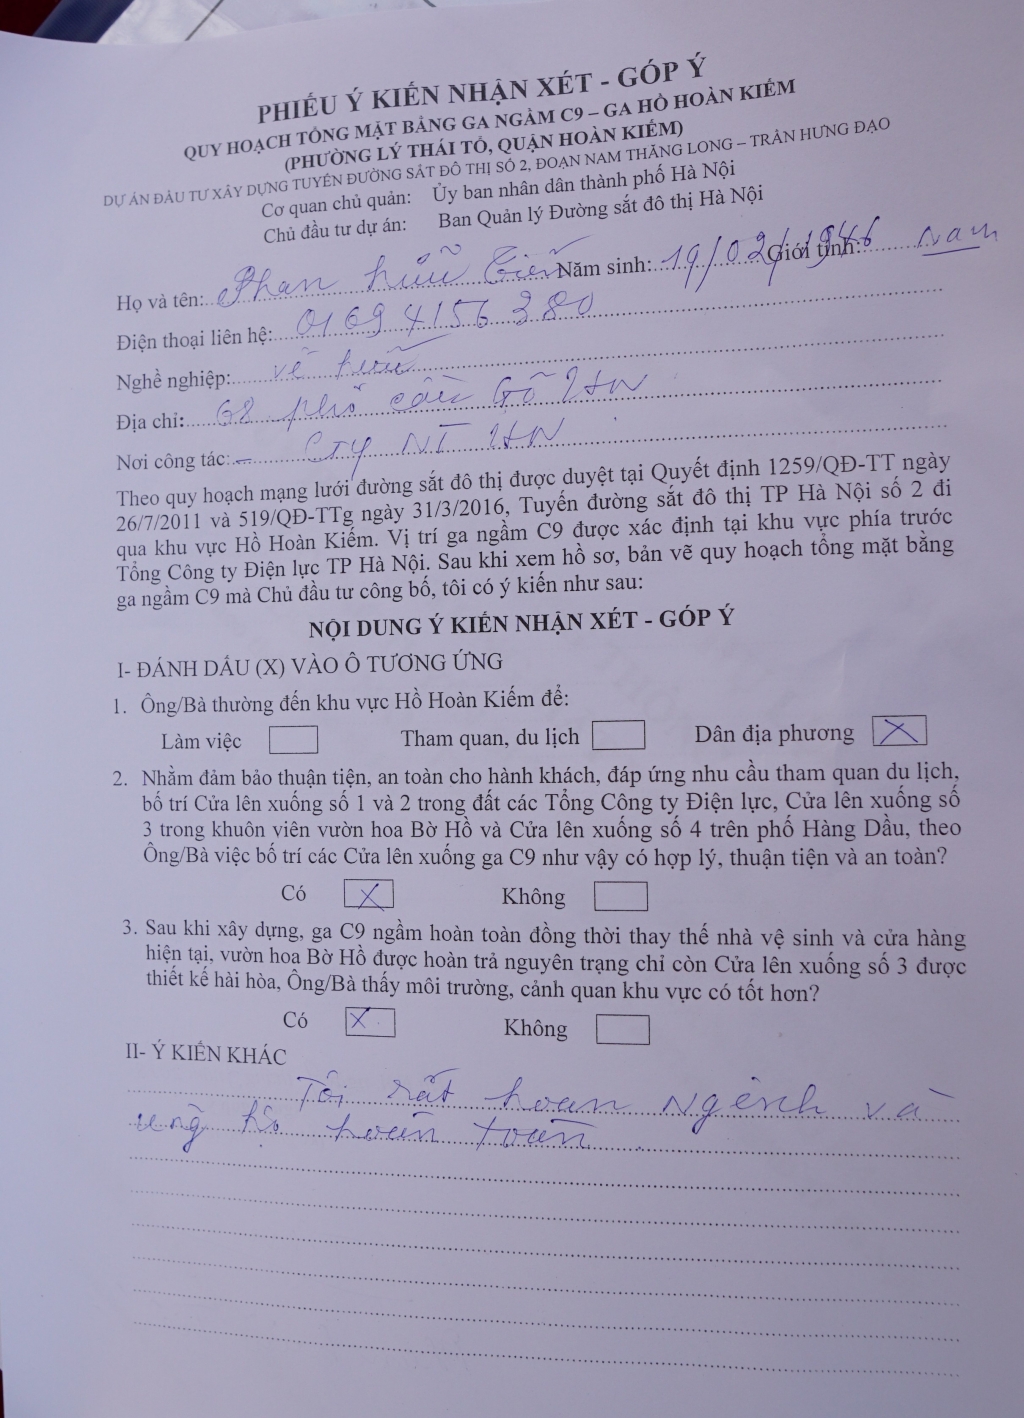 PHIẾU Ý KIẾN NHẬN XÉT - GÓP Ý
QUY HOẠCH TỔNG MẶT BẰNG GA NGẦM C9 – GA HỒ HOÀN KIẾM
(PHƯỜNG LÝ THÁI TỔ, QUẬN HOÀN KIẾM)
DỰ ÁN ĐẦU TƯ XÂY DỰNG TUYẾN ĐƯỜNG SẮT ĐÔ THỊ SỐ 2, ĐOẠN NAM THĂNG LONG – TRẦN HƯNG ĐẠO
Cơ quan chủ quản: Ủy ban nhân dân thành phố Hà Nội
Chủ đầu tư dự án: Ban Quản lý Đường sắt đô thị Hà Nội
Họ và tên: Phan Hữu Tiến Năm sinh: 19/02/1946 Giới tính: Nam
Điện thoại liên hệ: 01694156380
Nghề nghiệp: về hưu
Địa chỉ: 68 phố cầu Gỗ HN
Nơi công tác: CTY NT HN
Theo quy hoạch mạng lưới đường sắt đô thị được duyệt tại Quyết định 1259/QĐ-TT ngày
26/7/2011 và 519/QĐ-TTg ngày 31/3/2016, Tuyến đường sắt đô thị TP Hà Nội số 2 đi
qua khu vực Hồ Hoàn Kiếm. Vị trí ga ngầm C9 được xác định tại khu vực phía trước
Tổng Công ty Điện lực TP Hà Nội. Sau khi xem hồ sơ, bản vẽ quy hoạch tổng mặt bằng
ga ngầm C9 mà Chủ đầu tư công bố, tôi có ý kiến như sau:
NỘI DUNG Ý KIẾN NHẬN XÉT - GÓP Ý
I- ĐÁNH DẤU (X) VÀO Ô TƯƠNG ỨNG
1. Ông/Bà thường đến khu vực Hồ Hoàn Kiếm để:
Làm việc Tham quan, du lịch Dân địa phương X
2. Nhằm đảm bảo thuận tiện, an toàn cho hành khách, đáp ứng nhu cầu tham quan du lịch,
bố trí Cửa lên xuống số 1 và 2 trong đất các Tổng Công ty Điện lực, Cửa lên xuống số
3 trong khuôn viên vườn hoa Bờ Hồ và Cửa lên xuống số 4 trên phố Hàng Dầu, theo
Ông/Bà việc bố trí các Cửa lên xuống ga C9 như vậy có hợp lý, thuận tiện và an toàn?
Có X Không
3. Sau khi xây dựng, ga C9 ngầm hoàn toàn đồng thời thay thế nhà vệ sinh và cửa hàng
hiện tại, vườn hoa Bờ Hồ được hoàn trả nguyên trạng chỉ còn Cửa lên xuống số 3 được
thiết kế hài hòa, Ông/Bà thấy môi trường, cảnh quan khu vực có tốt hơn?
Có X Không
II- Ý KIẾN KHÁC
Tôi rất hoan Ngênh và
ưng hộ hoàn toàn